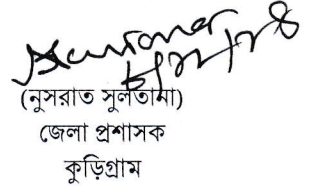 (নুসরাত সুলতানা)
জেলা প্রশাসক
কুড়িগ্রাম